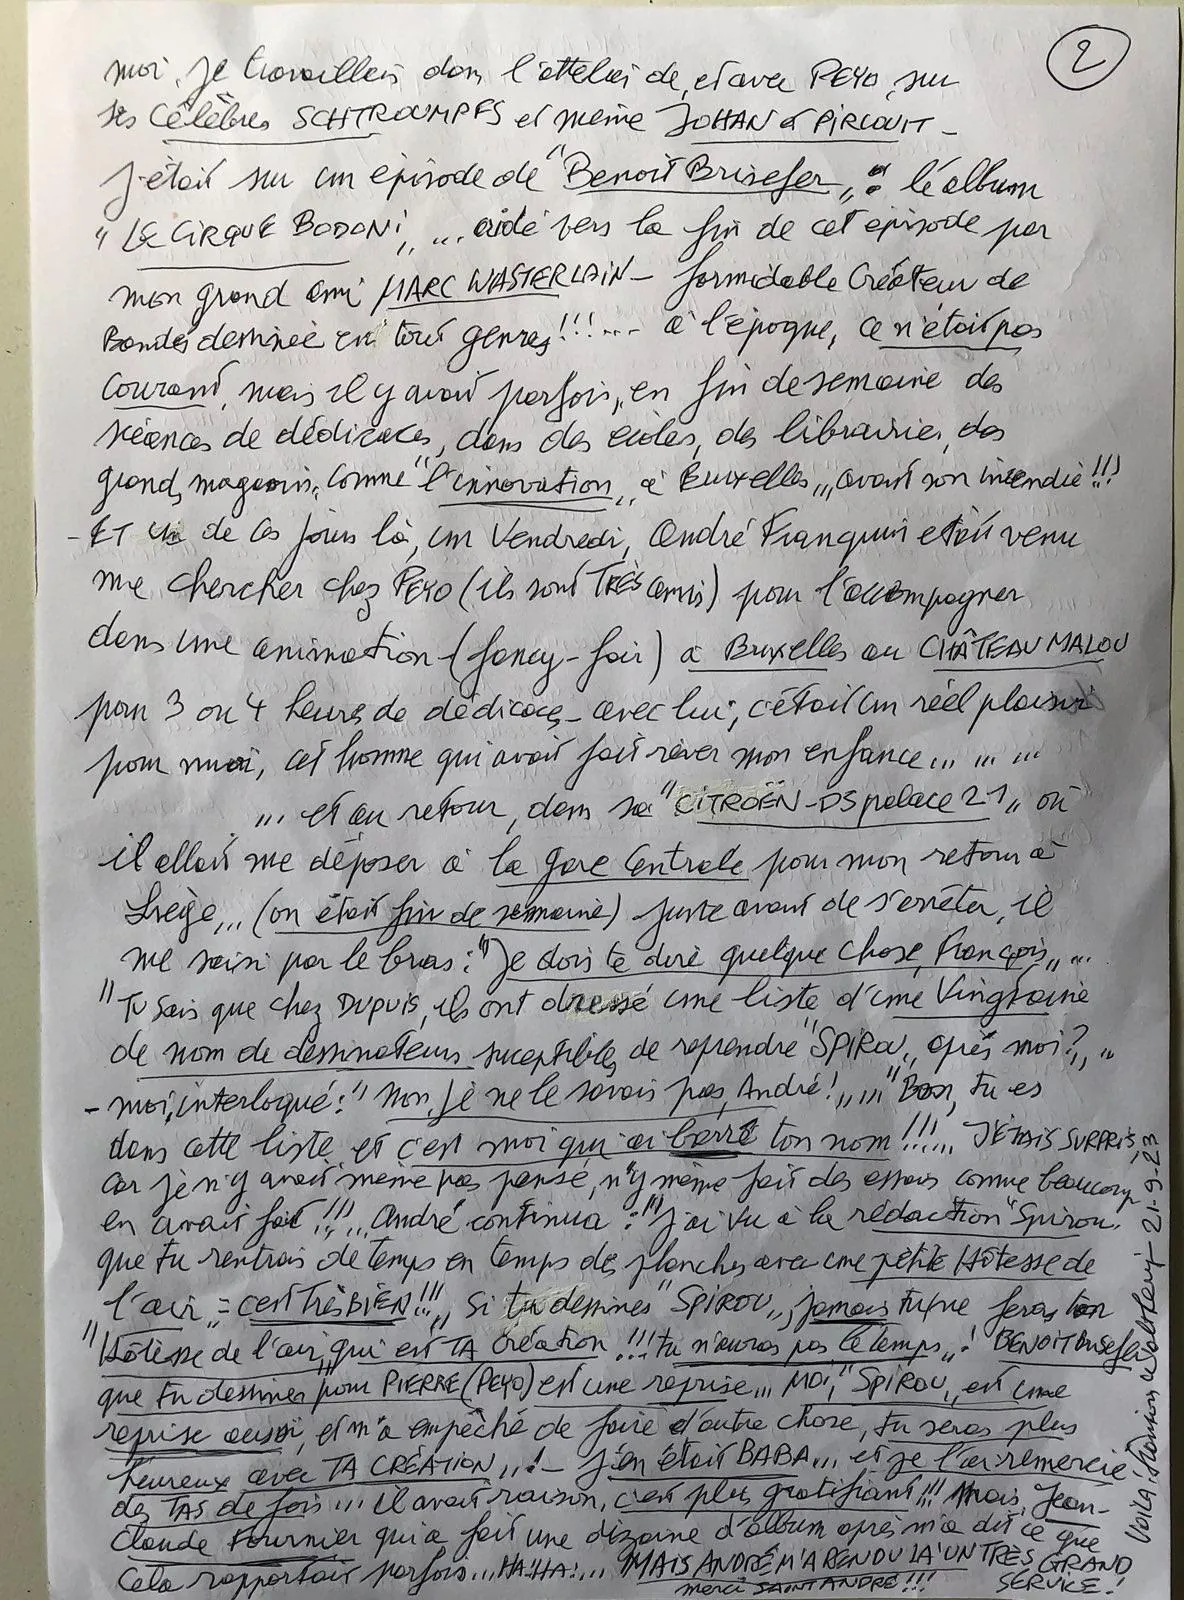 2
moi, je travaillais dans l'attelier de, et avec PEYO, sur
ses Célèbres SCHTROUMPFS et même JOHAN & PIRLOUIT -
J'étais sur un épisode de "Benoît Brisefer„ : l'album
"LE CIRQUE BODONI„ ... aidé vers la fin de cet épisode par
mon grand ami MARC WASTERLAIN - formidable Créateur de
Bandes dessinée en tout genres!!!... à l'époque, ce n'était pas
courant, mais il y avait parfois, en fin de semaine des
séances de dédicaces, dans des écoles, des librairies, des
grands magasins, comme "l'innovation„ à Bruxelles„, avant son incendie!!!
- ET un de ces jours là, un Vendredi, André Franquin était venu
me chercher chez PEYO (ils sont TRÈS amis) pour l'accompagner
dans une animation (fancy-fair) à Bruxelles au CHÂTEAU MALOU
pour 3 ou 4 heures de dédicaces - avec lui, c'était un réel plaisir
pour moi, cet homme qui avait fait rêver mon enfance... ... ...
... et au retour, dans sa "CITROËN-DS palace 21„ où
il allait me déposer à la gare Centrale pour mon retour à
Liège... (on était fin de semaine) juste avant de s'arrêter, il
me saisi par le bras: "Je dois te dire quelque chose, François„ ...
"Tu sais que chez DUPUIS, ils ont dressé une liste d'une Vingtaine
de nom de dessinateurs suceptibles de reprendre "SPIROU„ après moi?„ ..
- moi, interloqué: "Non, je ne le savais pas, André!„ ... "Bon, tu es
dans cette liste et c'est moi qui ai barré ton nom!!!... J'ÉTAIS SURPRIS,
car je n'y avais même pas pensé, n'y même fait des essais comme beaucoup
en avait fait!!!... André continua: "J'ai vu à la rédaction "Spirou„
que tu rentrais de temps en temps des planches avec une petite Hôtesse de
l'air = c'est TRÈS BIEN!!!„ Si tu dessines "SPIROU„, jamais tu ne feras ton
"Hôtesse de l'air„ qui est TA création!!! tu n'auras pas le temps„! BENOIT Brisefer
que tu dessines pour PIERRE (PEYO) est une reprise... MOI, "SPIROU„ est une
reprise aussi, et m'a empêché de faire d'autre chose, tu seras plus
heureux avec TA CRÉATION„! - J'en étais BABA... et je l'ai remercié
des TAS de fois... il avait raison, c'est plus gratifiant!!! Mais, Jean-
Claude Fournier qui a fait une dizaine d'album après m'a dit ce que
cela rapportait parfois... HA!HA!... MAIS ANDRÉ M'A RENDU LÀ UN TRÈS GRAND
SERVICE!
merci SAINT ANDRÉ!!!
Voilà! François Walthéry - 21-9-23